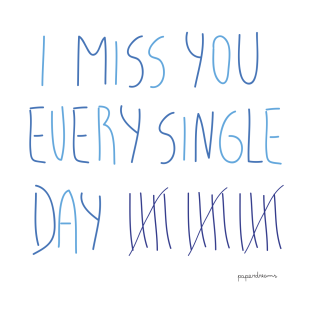 I MISS YOU
EVERY SINGLE
DAY
paperdreams